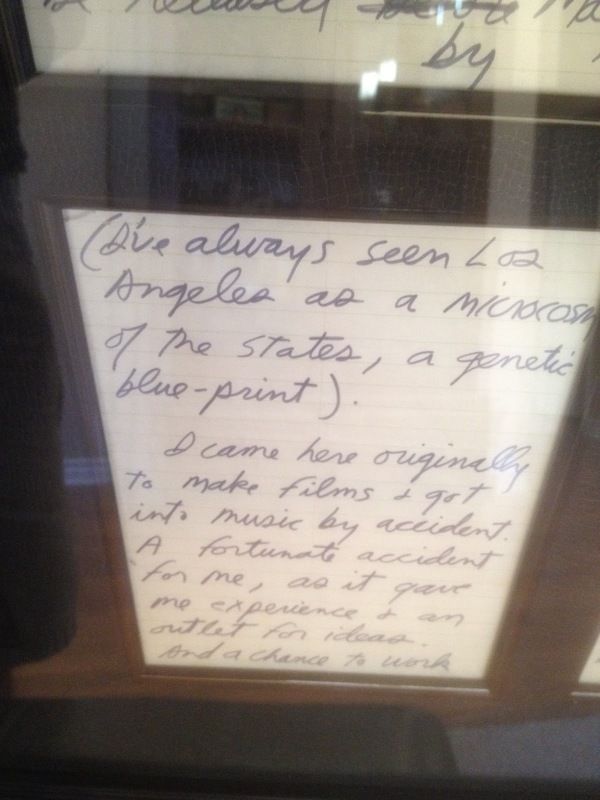 be released
by
(I've always seen Los
Angeles as a microcosm
of the states, a genetic
blue-print).
I came here originally
to make films & got
into music by accident.
A fortunate accident
for me, as it gave
me experience & an
outlet for ideas.
And a chance to work